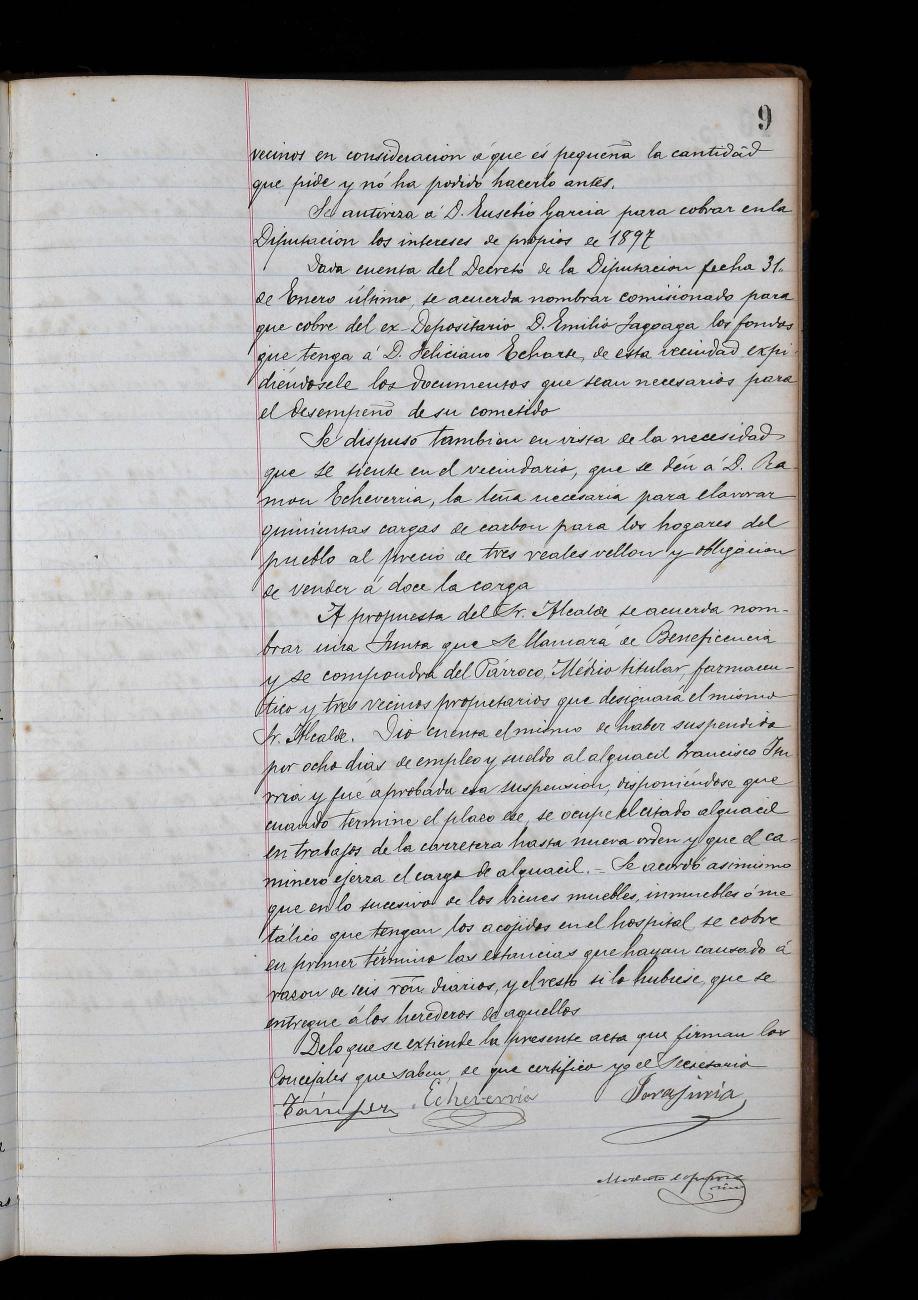 9
vecinos en consideracion á que és pequeña la cantidad
que pide y nó ha podido hacerlo antes.
Se autoriza á D. Eusebio Garcia para cobrar en la
Diputacion los intereses de propios de 1897
Dada cuenta del Decreto de la Diputacion fecha 31
de Enero último, se acuerda nombrar comisionado para
que cobre del ex-Depositario D. Emilio Jagoaga los fondos
que tenga á D. Feliciano Echarte, de esta vecindad expi-
diéndosele los documentos que sean necesarios para
el desempeño de su cometido
Se dispuso tambien en vista de la necesidad
que se siente en el vecindario, que se dén á D. Ra-
mon Echeverria, la leña necesaria para elavorar
quinientas cargas de carbon para los hogares del
pueblo al precio de tres reales vellon y obligacion
de vender á doce la carga
A propuesta del Sr. Alcalde se acuerda nom-
brar una Junta que se llamará de Beneficencia
y se compondrá del Párroco, Médico titular, farmaceu-
tico y tres vecinos propietarios que designará el mismo
Sr. Alcalde. Dio cuenta el mismo de haber suspendido
por ocho dias de empleo y sueldo al alguacil Francisco Itu
rria y fué aprobada esa suspension, disponiéndose que
cuando termine el plazo ese, se ocupe el citado alguacil
en trabajos de la carretera hasta nueva orden y que el ca-
minero ejerza el cargo de alguacil. - Se acordó asimismo
que en lo sucesivo de los bienes muebles, inmuebles ó me
tálico que tengan los acojidos en el hospital se cobre
en primer término las estancias que hayan causado á
razon de seis rón diarios, y el resto si lo hubiese, que se
entregue á los herederos de aquellos
De lo que se extiende la presente acta que firman los
Concejales que saben, de que certifico yo el Secretario
Echeverria
Modesto